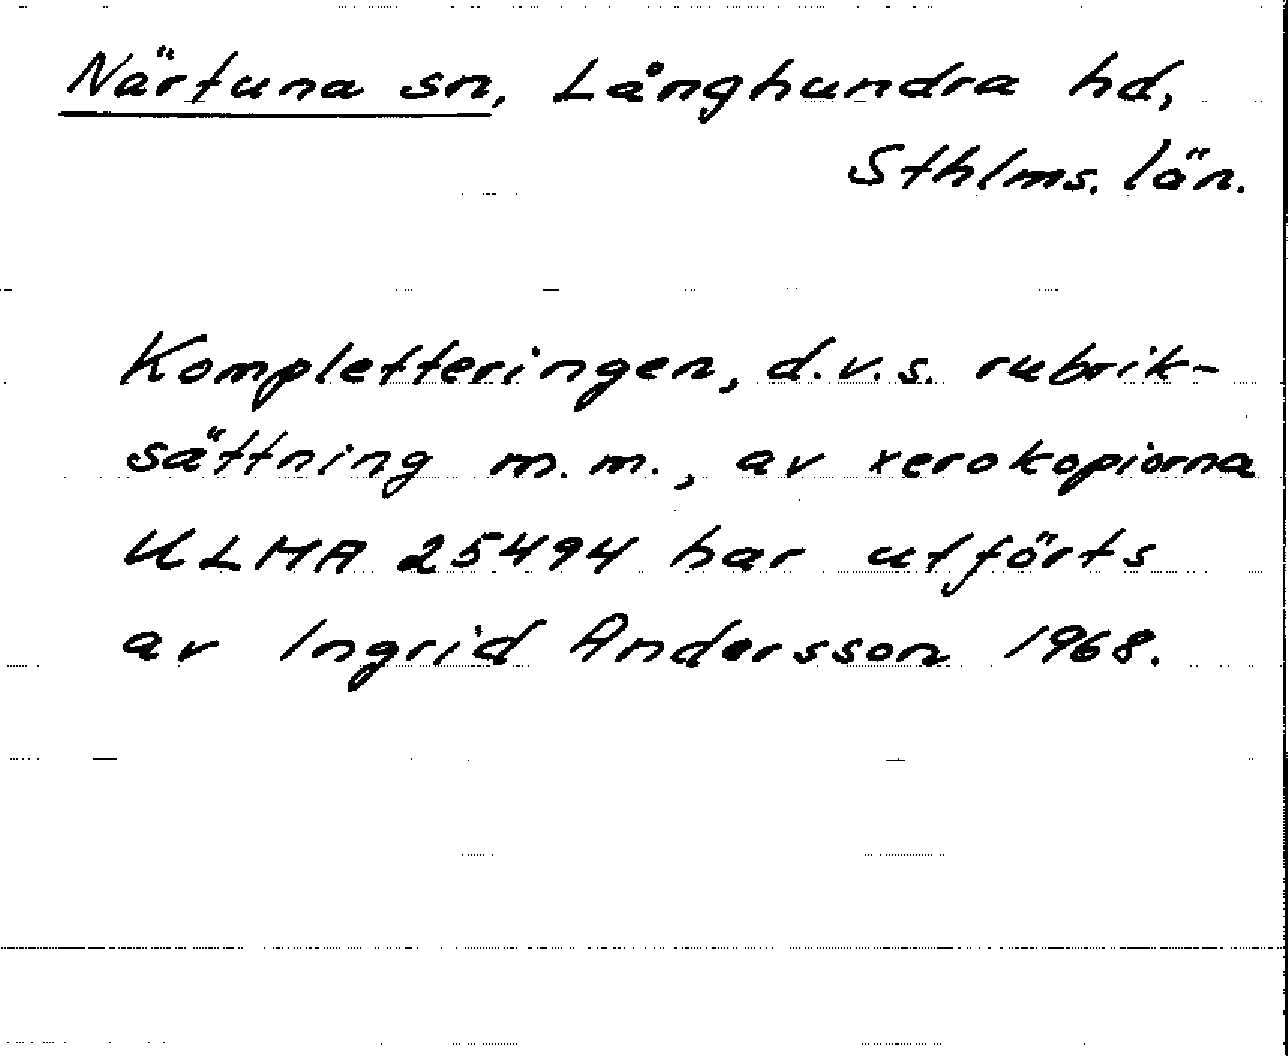 Närtuna sn, Långhundra hd,
Sthlms. län.
Kompletteringen, d.v.s. rubrik-
sättning m.m., av xerokopiorna
ULMA 25494 har utförts
av Ingrid Andersson 1968.